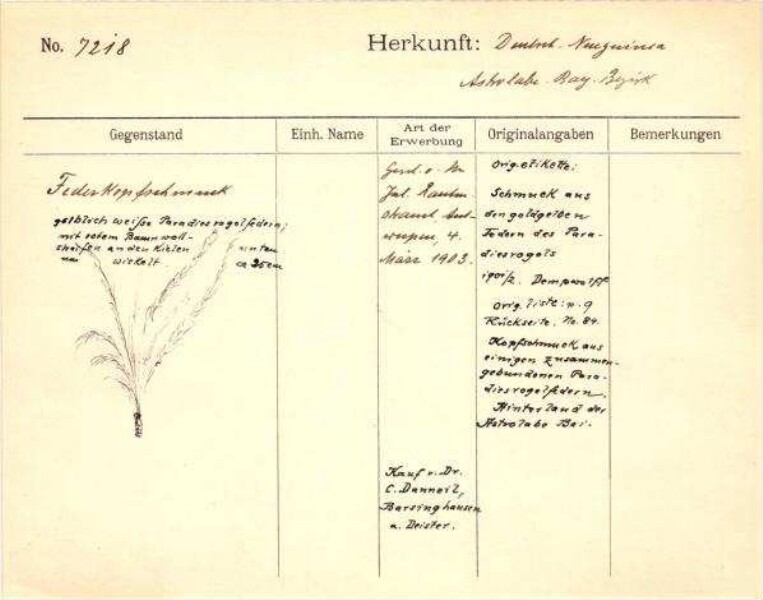 No. 7218
Herkunft: Deutsch. Neuguinea
Astrolabe Bay. Bezirk
Gegenstand
Einh. Name
Art der Erwerbung
Originalangaben
Bemerkungen
Federkopfschmuck
gelblich weiße Paradiesvogelfedern;
mit rotem Baumwoll-
an den Kielen unten
wickelt. ca 35cm
Gesch. v.
Jul.
März 1903.
Kauf v. Dr.
C. Danneil,
Barsinghausen
a. Deister.
Orig. etikette:
Schmuck aus
den goldgelben
Federn des Para-
diesvogels
Orig. liste: p. 9
Rückseite. No. 84.
Kopfschmuck aus
einigen zusammen-
gebundenen Para-
diesvogelfedern.
Hinterland der
Astrolabe Bai.